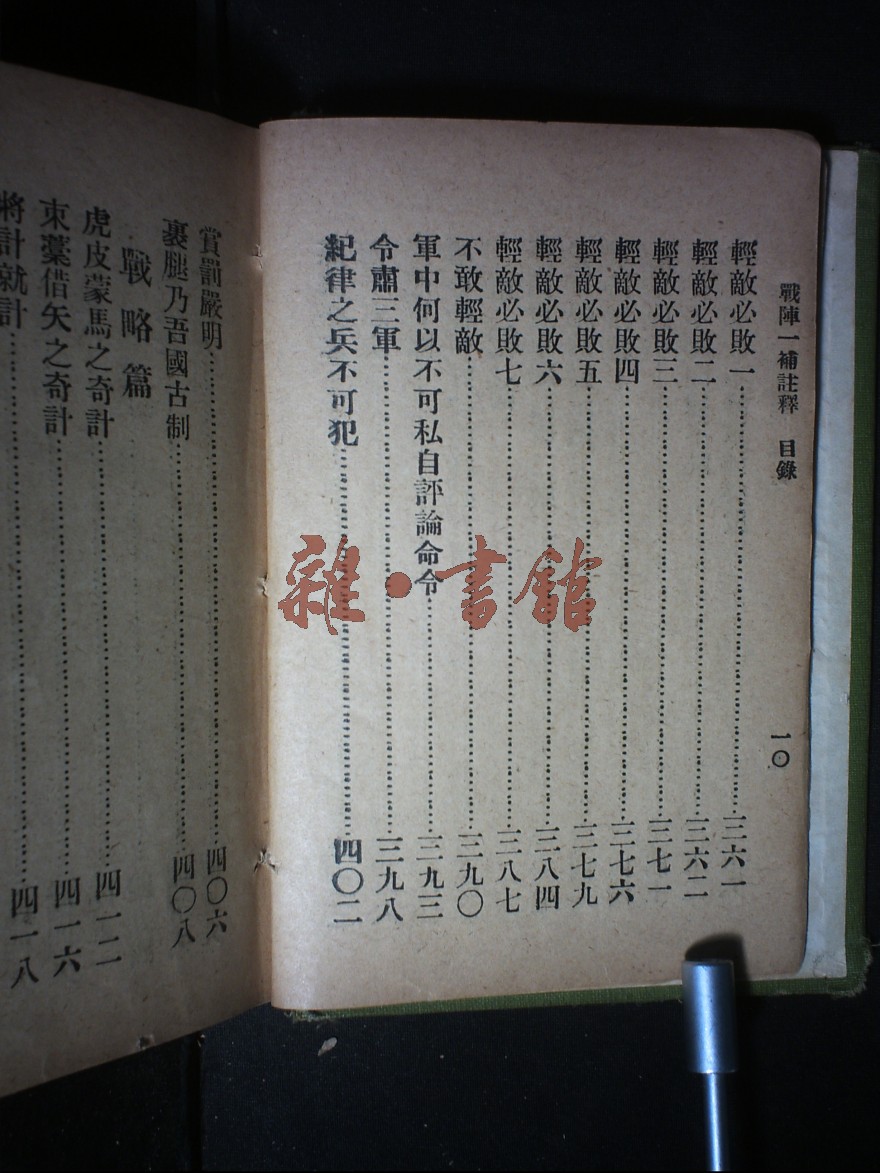 戰陣一補註釋　目錄
一〇
輕敵必敗一……三六一
輕敵必敗二……三六二
輕敵必敗三……三七一
輕敵必敗四……三七六
輕敵必敗五……三七九
輕敵必敗六……三八四
輕敵必敗七……三八七
不敢輕敵……三九〇
軍中何以不可私自評論命令……三九三
令肅三軍……三九八
紀律之兵不可犯……四〇二
賞罰嚴明……四〇六
裹腿乃吾國古制……四〇八
戰略篇
虎皮蒙馬之奇計……四一二
束藁借矢之奇計……四一六
將計就計……四一八
雜·書館